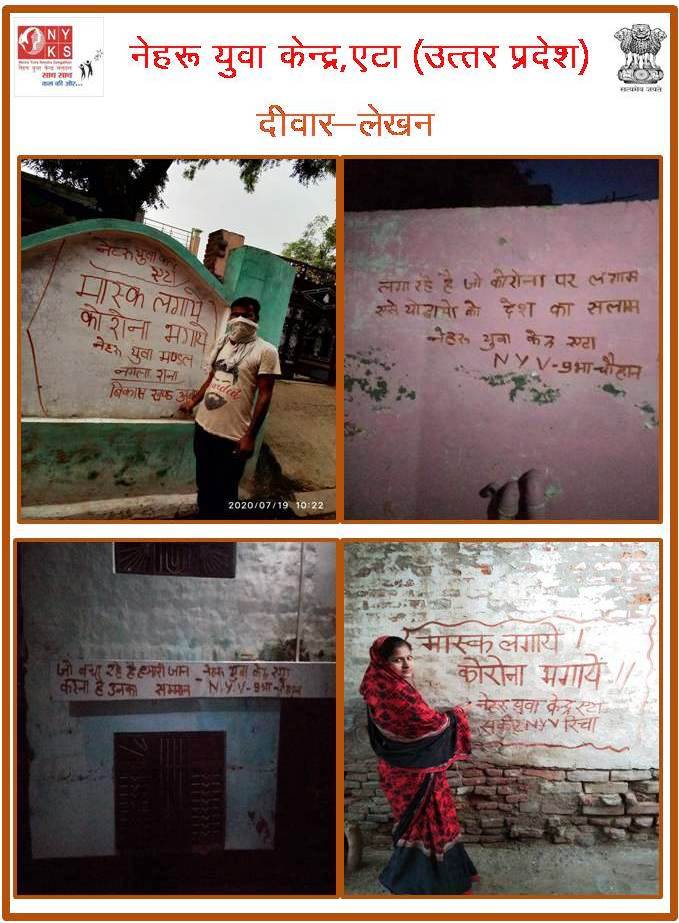 NY
KS
Nehru Yuva Kendra Sangathan
नेहरू युवा केन्द्र संगठन
साथ साथ
कल की ओर...
नेहरू युवा केन्द्र,एटा (उत्तर प्रदेश)
सत्यमेव जयते
दीवार–लेखन
नेहरू युवा केन्द्र
एटा
मास्क लगाये
कोरोना भगाये
नेहरू युवा मण्डल
नगला राना
विकास खण्ड
2020/07/19 10:22
लगा रहे है जो कोरोना पर लगाम
एसे योद्धायो को देश का सलाम
नेहरू युवा केन्द्र एटा
NYV-प्रभा-चौहान
जो बचा रहे है हमारी जान - नेहरू युवा केन्द्र एटा
करना है उनका सम्मान N.Y.V-प्रभा-चौहान
मास्क लगाये !
कोरोना भगाये !!
नेहरू युवा केन्द्र एटा
सकीट NYV रिचा